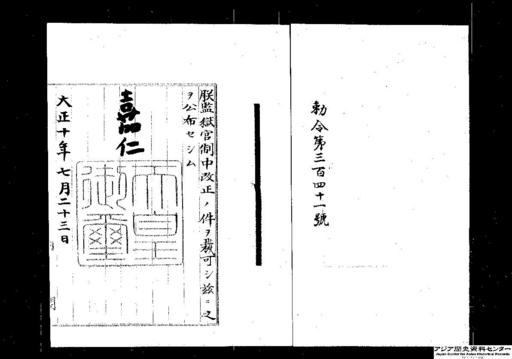 勅令第三百四十一號
朕監獄官制中改正ノ件ヲ裁可シ茲ニ之
ヲ公布セシム
嘉仁
天皇御璽
大正十年七月二十三日
アジア歴史資料センター
Japan Center for Asian Historical Records